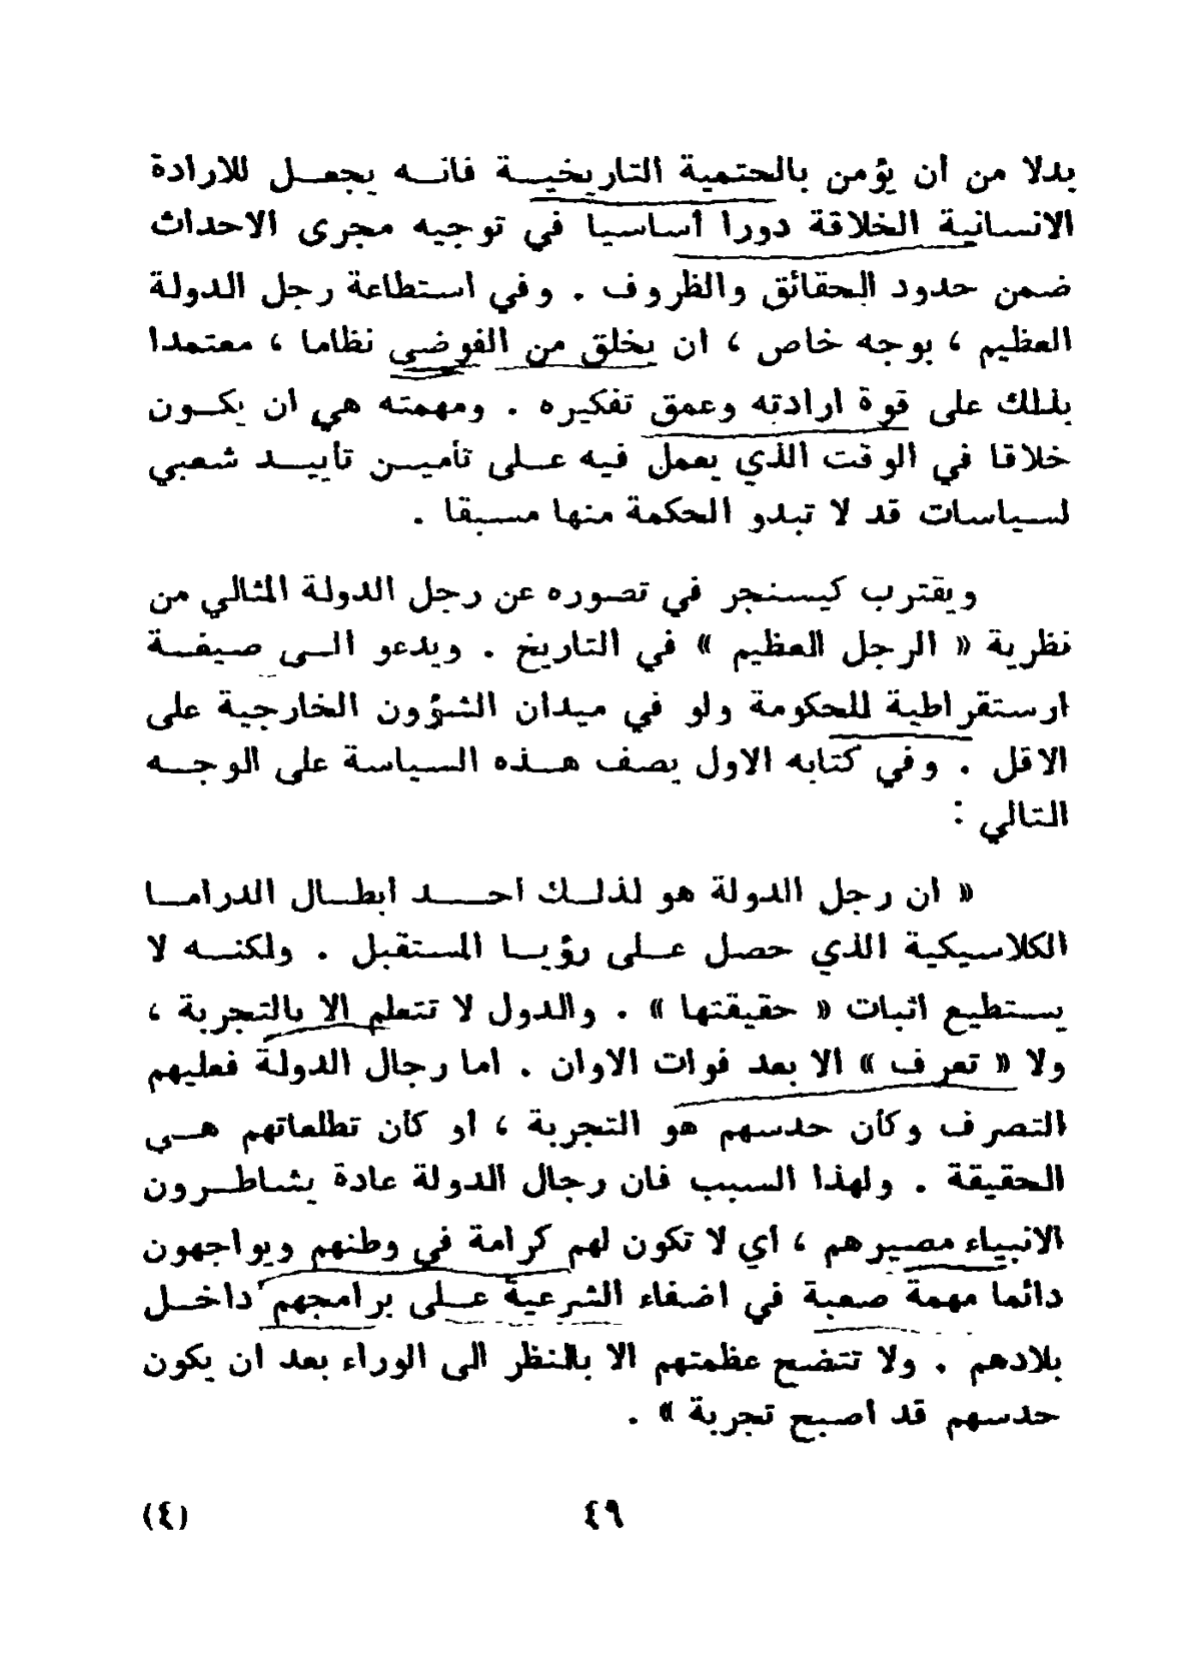 بدلا من أن يؤمن بالحتمية التاريخيـــة فانـــه يجعـــل للارادة
الانسانية الخلاقة دورا أساسيا في توجيه مجرى الاحداث
ضمن حدود الحقائق والظروف . وفي استطاعة رجل الدولة
العظيم ، بوجه خاص ، ان يخلق من الفوضى نظاما ، معتمدا
بذلك على قوة ارادته وعمق تفكيره . ومهمته هي ان يكــون
خلاقا في الوقت الذي يعمل فيه علــى تأميــن تأييــد شعبي
لسياسات قد لا تبدو الحكمة منها مسبقا .
ويقترب كيسنجر في تصوره عن رجل الدولة المثالي من
نظرية « الرجل العظيم » في التاريخ . ويدعو الــى صيغــة
ارستقراطية للحكومة ولو في ميدان الشؤون الخارجية على
الاقل . وفي كتابه الاول يصف هــذه السياسة على الوجــه
التالي :
« ان رجل الدولة هو لذلــك احــــد ابطــال الدرامــا
الكلاسيكية الذي حصل علــى رؤيــا المستقبل . ولكنــه لا
يستطيع اثبات « حقيقتها » . والدول لا تتعلم الا بالتجربة ،
ولا « تعرف » الا بعد فوات الاوان . اما رجال الدولة فعليهم
التصرف وكأن حدسهم هو التجربة ، أو كأن تطلعاتهم هــي
الحقيقة . ولهذا السبب فان رجال الدولة عادة يشاطــرون
الانبياء مصيرهم ، أي لا تكون لهم كرامة في وطنهم ويواجهون
دائما مهمة صعبة في اضفاء الشرعية علــى برامجهم داخــل
بلادهم . ولا تتضح عظمتهم الا بالنظر الى الوراء بعد ان يكون
حدسهم قد اصبح تجربة » .
٤٩
(٤)